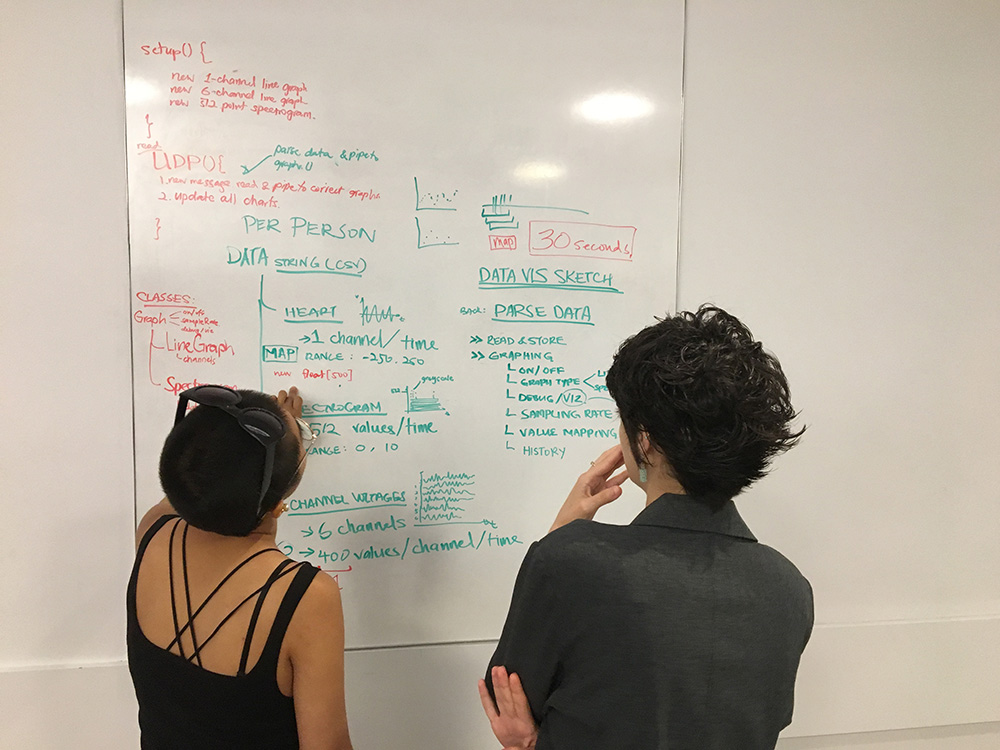 setup() {
new 1-channel line graph
new 6-channel line graph
new 512 point spectrogram.
}
read
UDP(){
parse data & pipe to
graph.()
1. new message read & pipe to correct graph
2. update all charts.
}
PER PERSON
DATA STRING (CSV)
HEART
→ 1 channel/time
MAP RANGE: -250.250
new float[500]
ECTROGRAM
grayscale
512 values/time
RANGE: 0, 10
CHANNEL VOLTAGES
→ 6 channels
→ 400 values/channel/time
CLASSES:
Graph
on/off
sampleRate
debug/viz
LineGraph
channels
map
30 seconds
DATA VIS SKETCH
PARSE DATA
>> READ & STORE
>> GRAPHING
ON/OFF
GRAPH TYPE
DEBUG/VIZ
SAMPLING RATE
VALUE MAPPING
HISTORY